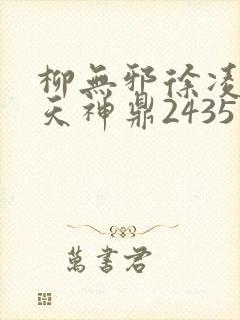 柳無邪徐凌
天神鼎2435
萬書君